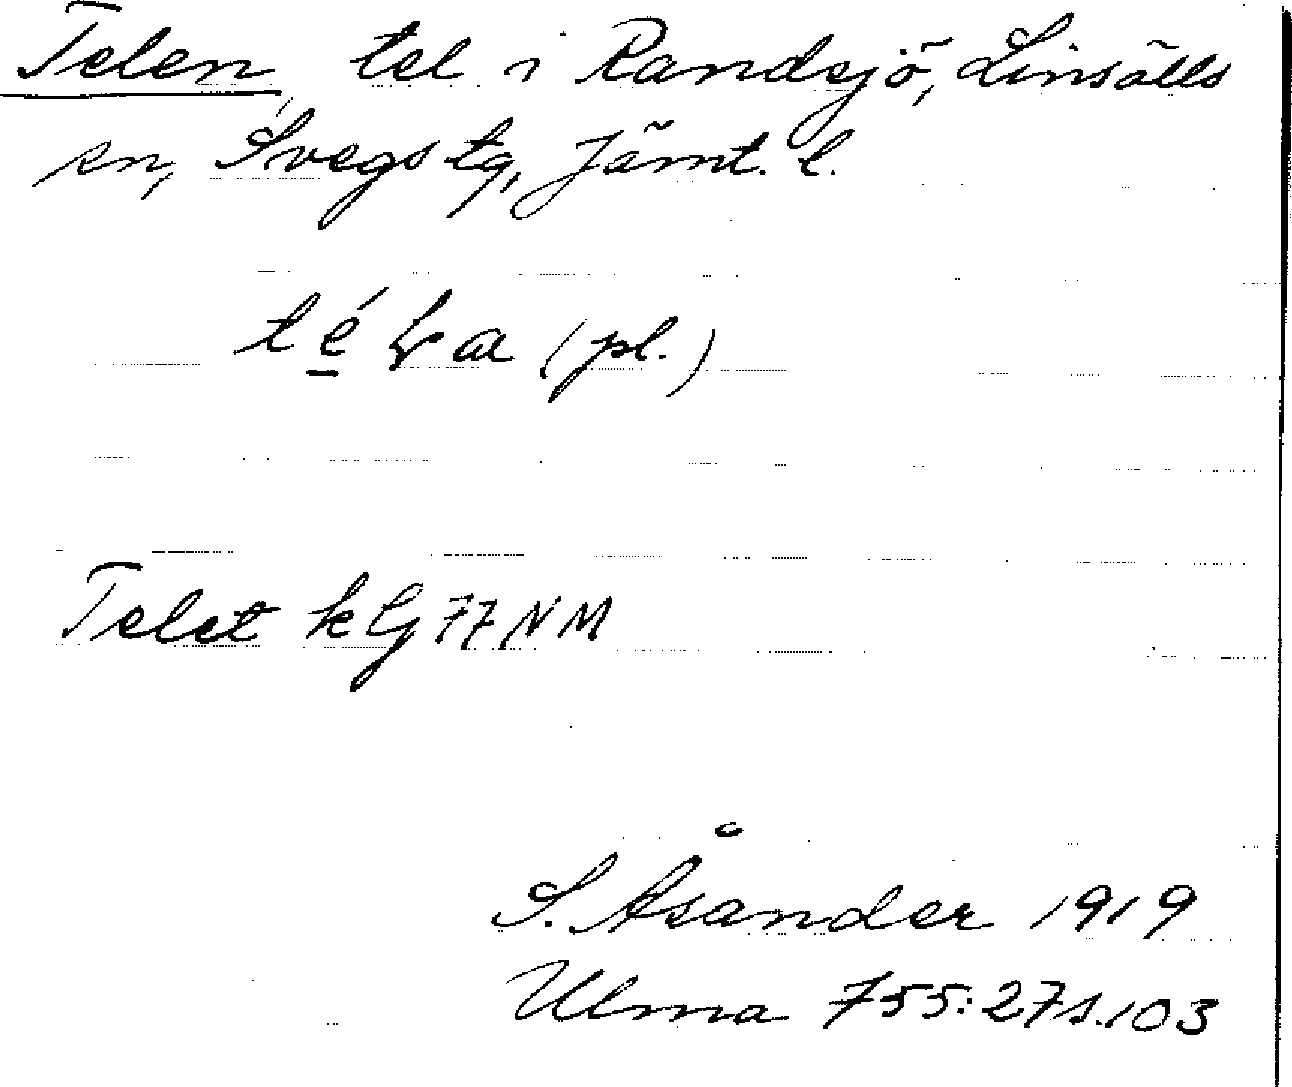 Telen, tel i Randsjö, Linsälls
sn, Svegs tg, Jämt. l.
(pl.)
Telet kG 77 NM
S. Åsander 1919
Ulma 755:27 s. 103